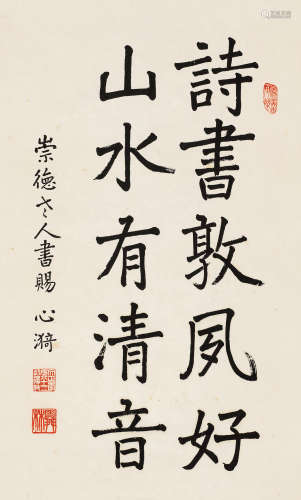 詩書敦夙好
山水有清音
崇德老人書賜 心漪